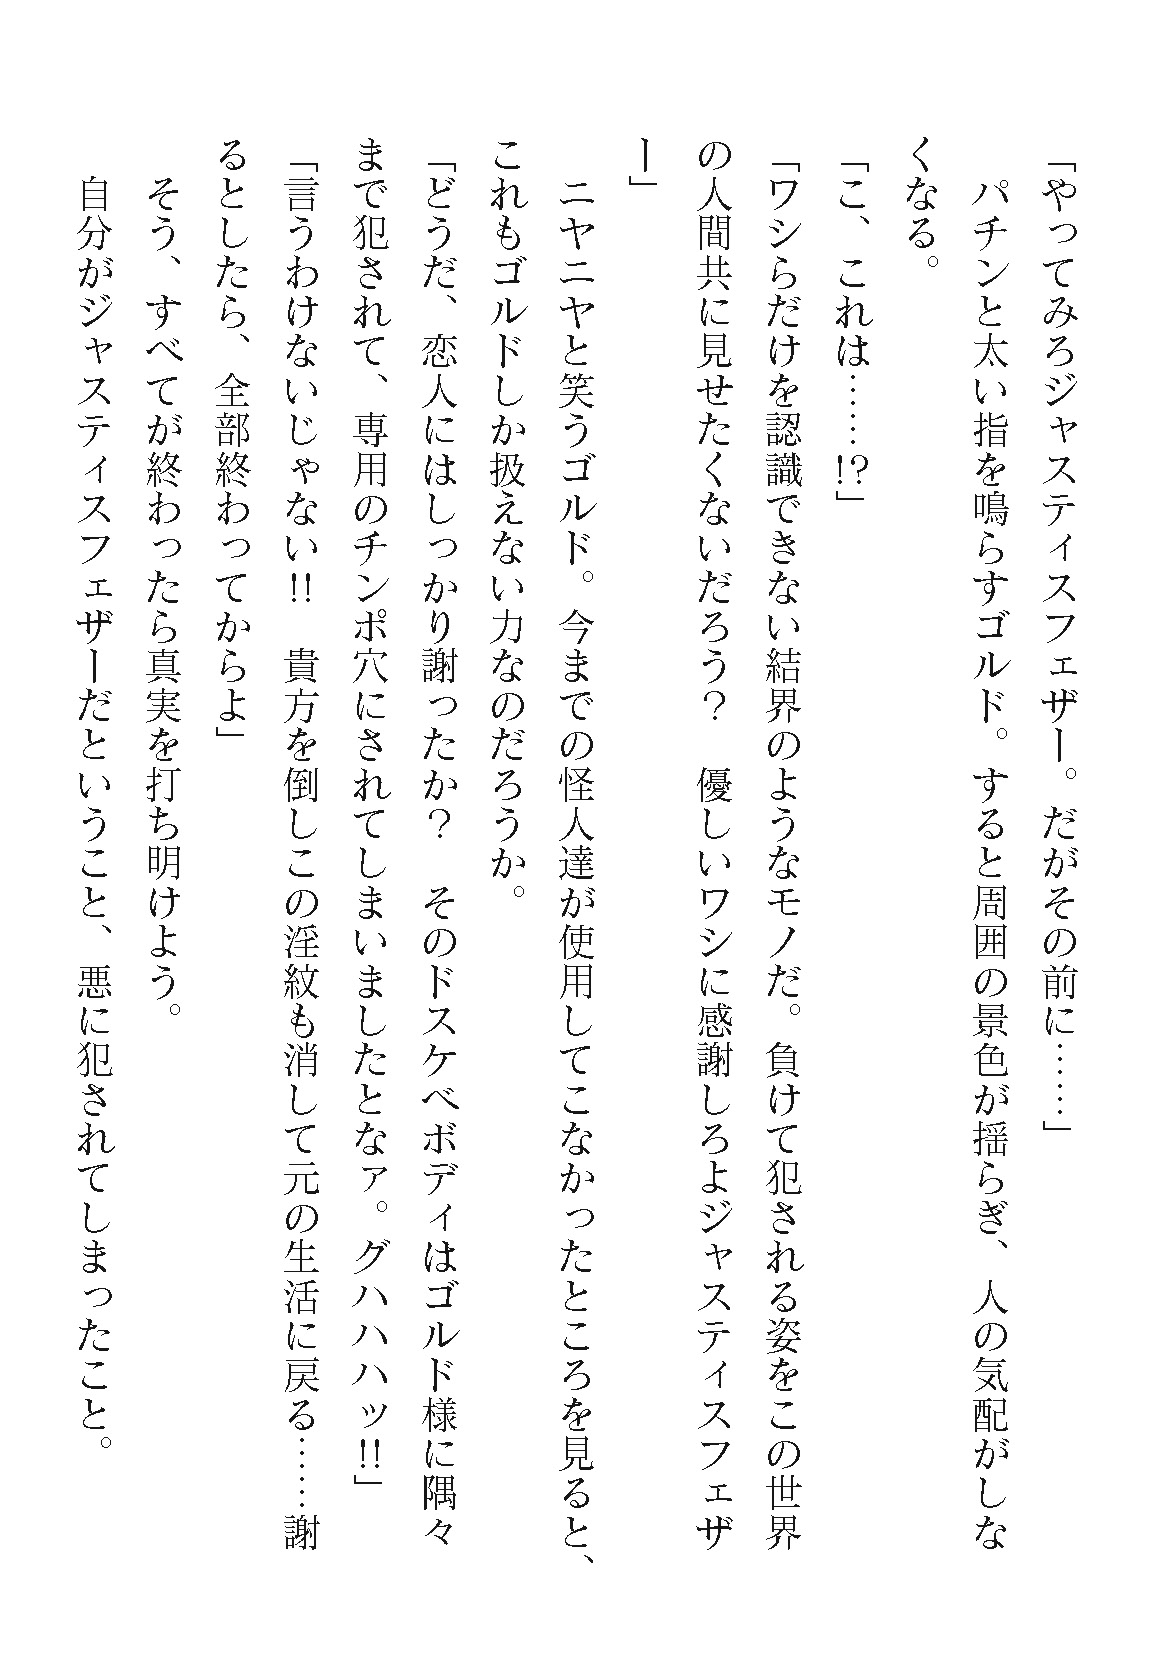 「やってみろジャスティスフェザー。だがその前に……」
　パチンと太い指を鳴らすゴルド。すると周囲の景色が揺らぎ、人の気配がしな
くなる。
「こ、これは……!?」
「ワシらだけを認識できない結界のようなモノだ。負けて犯される姿をこの世界
の人間共に見せたくないだろう？　優しいワシに感謝しろよジャスティスフェザ
ー」
　ニヤニヤと笑うゴルド。今までの怪人達が使用してこなかったところを見ると、
これもゴルドしか扱えない力なのだろうか。
「どうだ、恋人にはしっかり謝ったか？　そのドスケベボディはゴルド様に隅々
まで犯されて、専用のチンポ穴にされてしまいましたとなァ。グハハハッ!!」
「言うわけないじゃない!!　貴方を倒しこの淫紋も消して元の生活に戻る……謝
るとしたら、全部終わってからよ」
　そう、すべてが終わったら真実を打ち明けよう。
　自分がジャスティスフェザーだということ、悪に犯されてしまったこと。